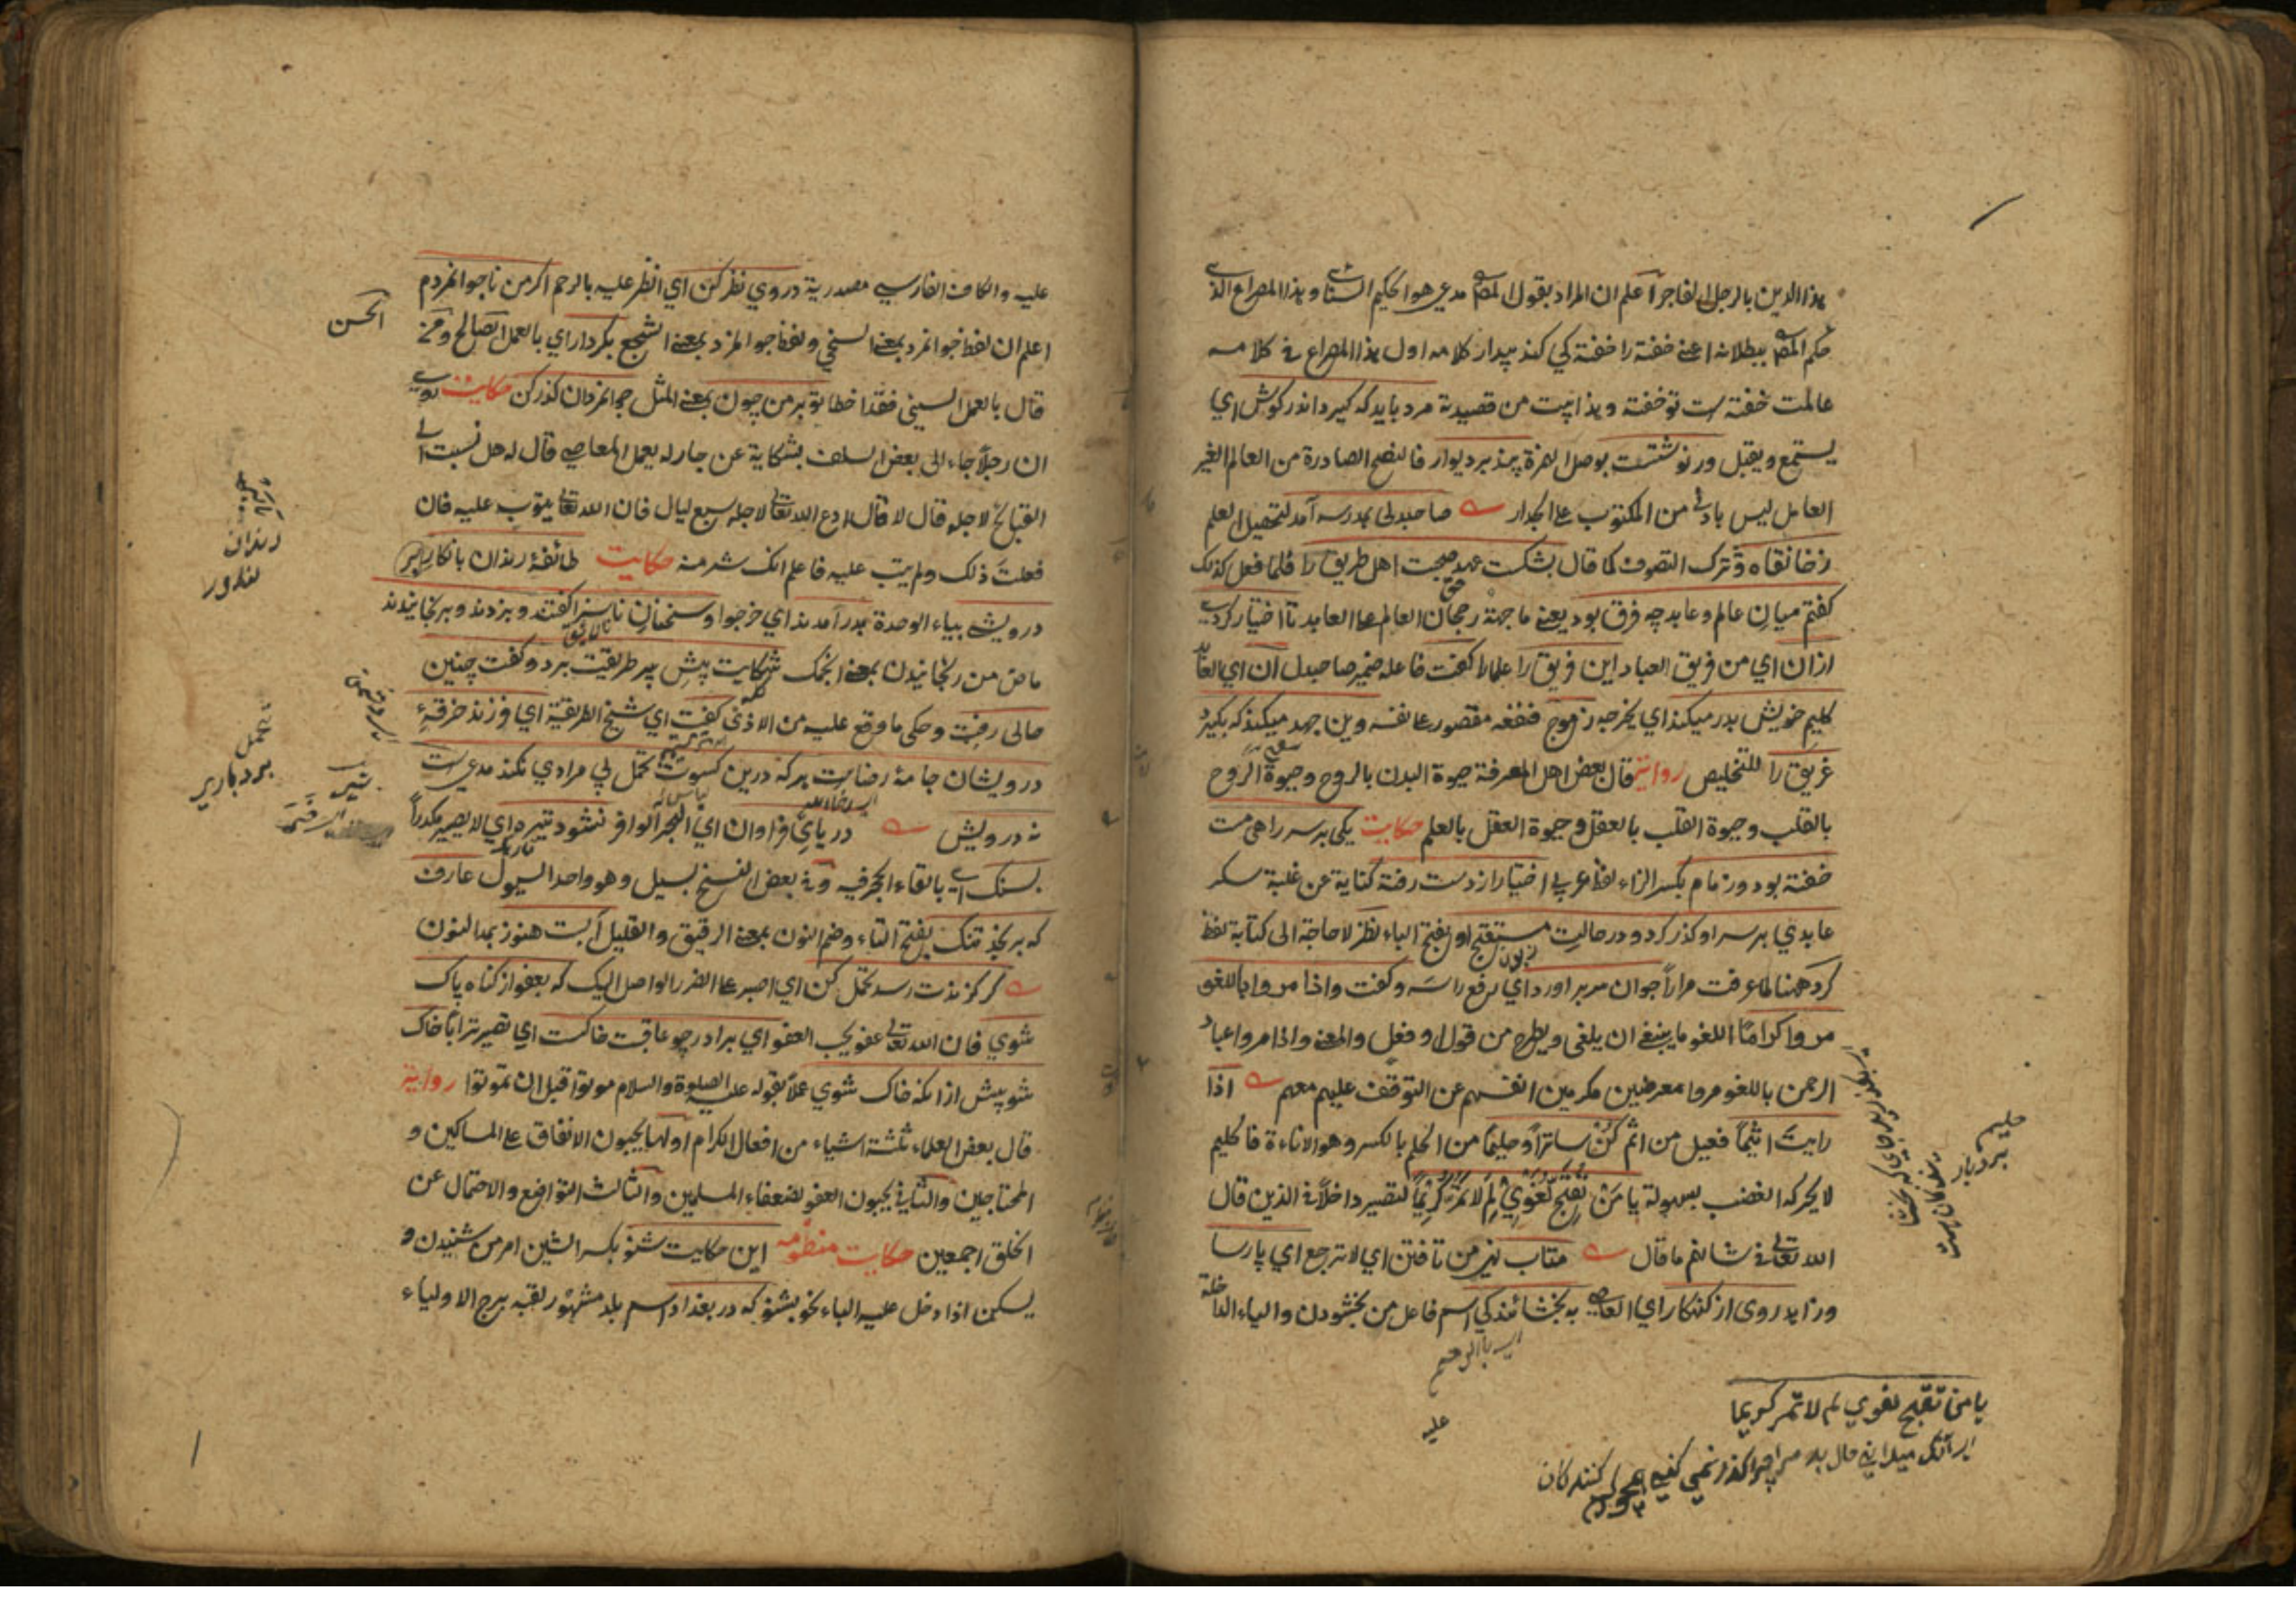 هذا الدين بالرجل الفاجر اعلم ان المراد بقول المص مدعي هو الحكيم السنائي وهذا المصراع الذي
حكم المص ببطلانه اعني خفته را خفته كي كند بيدار كلامه اول هذا المصراع في كلامه
عالمت خفته است تو خفته وهذا بيت من قصيدته مرد بايد كه كيرد اندر كوش اي
يستمع ويقبل ور نوشتست بوصل الهمزة پند بر ديوار فالنصح الصادرة من العالم الغير
العامل ليس بادني من المكتوب علي الجدار صاحبدلي بمدرسه آمد لتحصيل العلم
زخانقاه وترك التصوف كما قال بشكست عهد صحبت اهل طريق را فلما فعل كذلك
كفتم ميان عالم وعابد چه فرق بود يعني ما جهة رجحان العالم علي العابد تا اختيار كردي
ازان اي من فريق العباد اين فريق را علما را كفت فاعله ضمير صاحبدل آن اي العابد
كليم خويش بدر ميكند اي يخرجه ز موج فنفعه مقصور علي نفسه وين جهد ميكند كه بكيرد
غريق را للتخليص رواية قال بعض اهل المعرفة حيوة البدن بالروح وحيوة الروح
بالقلب وحيوة القلب بالعقل وحيوة العقل بالعلم حكايت يكي بر سر راهي مست
خفته بود وزمام بكسر الزاء لفظ عربي اختيار از دست رفته كناية عن غلبة سكر
عابدي بر سر او كذر كرد ودر حالت مستقبح او بفتح الباء نظر لا حاجة الى كتابة لفظ
كرد ههنا لما عرفت مرارا جوان سر بر اورد اي رفع راسه وكفت واذا مروا باللغو
مروا كراما اللغو ما ينبغي ان يلغى ويطرح من قول او فعل والمعني واذا مروا عباد
الرحمن باللغو مروا معرضين مكرمين انفسهم عن التوقف عليهم معهم اذا
رايت اثيما فعيل من اثم كن ساترا وحليما من الحلم بالكسر وهو الاناءة فالحليم
لا يحركه الغضب بسهولة يا من تقبح لغوي لم لا تمر كريما لتصير داخلا في الذين قال
الله تعالي في شانهم ما قال متاب نهي من تافتن اي لا ترجع اي پارسا
وزاهد روي از كنهكار اي العاصي به بخشائندكي اسم فاعل من بخشودن والياء الداخلة
اي بالرحم
عليه
حليم
بردبار
يا من تقبح لغوي لم لا تمر كريما
اي آنك ميداني حال بد مرا چرا كذر نمي كني همچو كرم كنندكان
عليه والكاف الفارسي مصدرية در وي نظر كن اي انظر عليه بالرحم اكر من ناجوانمردم
اعلم ان لفظ جوانمرد بمعني السخي ولفظ جوانمرد بمعني الشجيع بكردار اي بالعمل الصالح ومن
قال بالعمل السيئ فقد اخطا تو بر من چون بمعني المثل جوانمردان كذر كن حكايت روي
ان رجلا جاء الى بعض السلف بشكاية عن جار له يعمل المعاصي قال له هل نسبت الي
القبائح لاجله قال لا قال ادع الله تعالي لاجله سبع ليال فان الله تعالي يتوب عليه فان
فعلت ذلك ولم يتب عليه فاعلم انك شر منه حكايت طائفه رندان بانكار
درويشي بياء الوحدة بدر آمدند اي خرجوا وسخنان ناسزا كفتند وبزدند وبرنجانيدند
ماض من رنجانيدن بمعني انجمك شكايت پيش پير طريقت برد وكفت چنين
حالي رفت وحكى ما وقع عليه من الاذي كفت اي شيخ الطريقة اي فرزند خرقه
درويشان جامه رضاست هر كه درين كسوت تحمل بي مرادي نكند مدعي است
نه درويش درياي فراوان اي البحر الوافر نشود تيره اي لا يصير مكدرا
بسنك اي بالقاء الحجر فيه وفي بعض النسخ بسيل وهو واحد السيول عارف
كه برنجد تنك بفتح التاء وضم النون بمعني الرقيق والقليل آبست هنوز بمد النون
كر كزندت رسد تحمل كن اي اصبر علي الضرر الواصل اليك كه بعفو از كناه پاك
شوي فان الله تعالي عفو يحب العفو اي برادر چو عاقبت خاكست اي تصير ترابا خاك
شو پيش ازانكه خاك شوي عملا بقوله عليه الصلوة والسلام موتوا قبل ان تموتوا رواية
قال بعض العلماء ثلثة اشياء من افعال الكرام اولها يحبون الانفاق علي المساكين و
المحتاجين والثاني يحبون العفو لضعفاء المسلمين والثالث التواضع والاحتمال عن
الخلق اجمعين حكايت منظومه اين حكايت شنو بكسر الشين امر من شنيدن و
يسكن اذا دخل عليه الباء نحو بشنو كه در بغداد اسم بلد مشهور لقبه برج الاولياء
الحسن
رندان
تحمل
بردباري